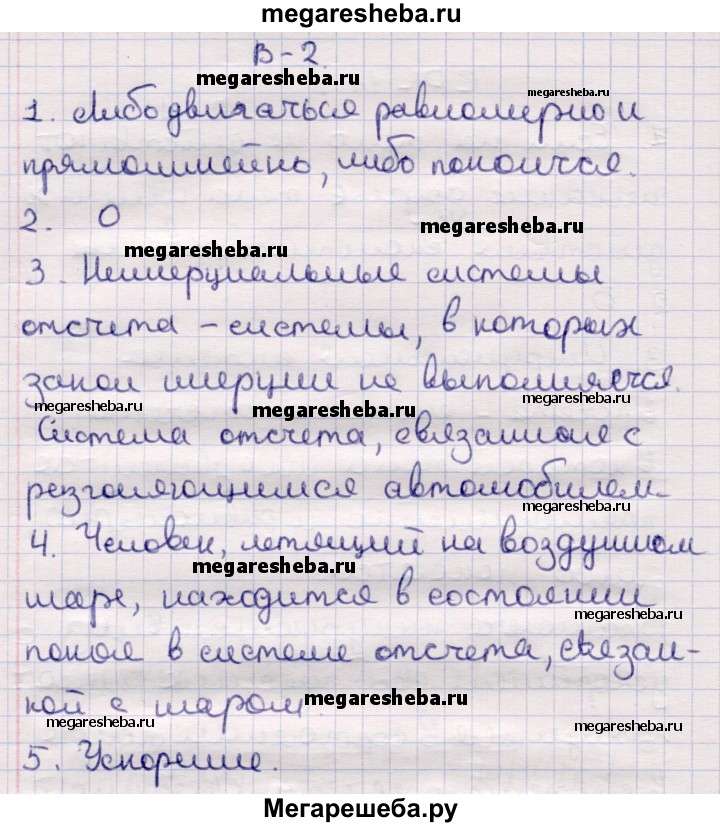 megaresheba.ru
В-2.
megaresheba.ru
megaresheba.ru
1. Либо двигаться равномерно и
прямолинейно, либо покоится.
2. 0
megaresheba.ru
megaresheba.ru
3. Неинерциальные системы
отсчета - системы, в которых
закон инерции не выполняется.
megaresheba.ru
megaresheba.ru
megaresheba.ru
Система отсчета, связанная с
разгоняющимся автомобилем.
megaresheba.ru
4. Человек, летящий на воздушном
megaresheba.ru
шаре, находится в состоянии
megaresheba.ru
покоя в системе отсчета, связан-
ной с шаром.
megaresheba.ru
megaresheba.ru
megaresheba.ru
5. Ускорение.
Мегарешеба.ру